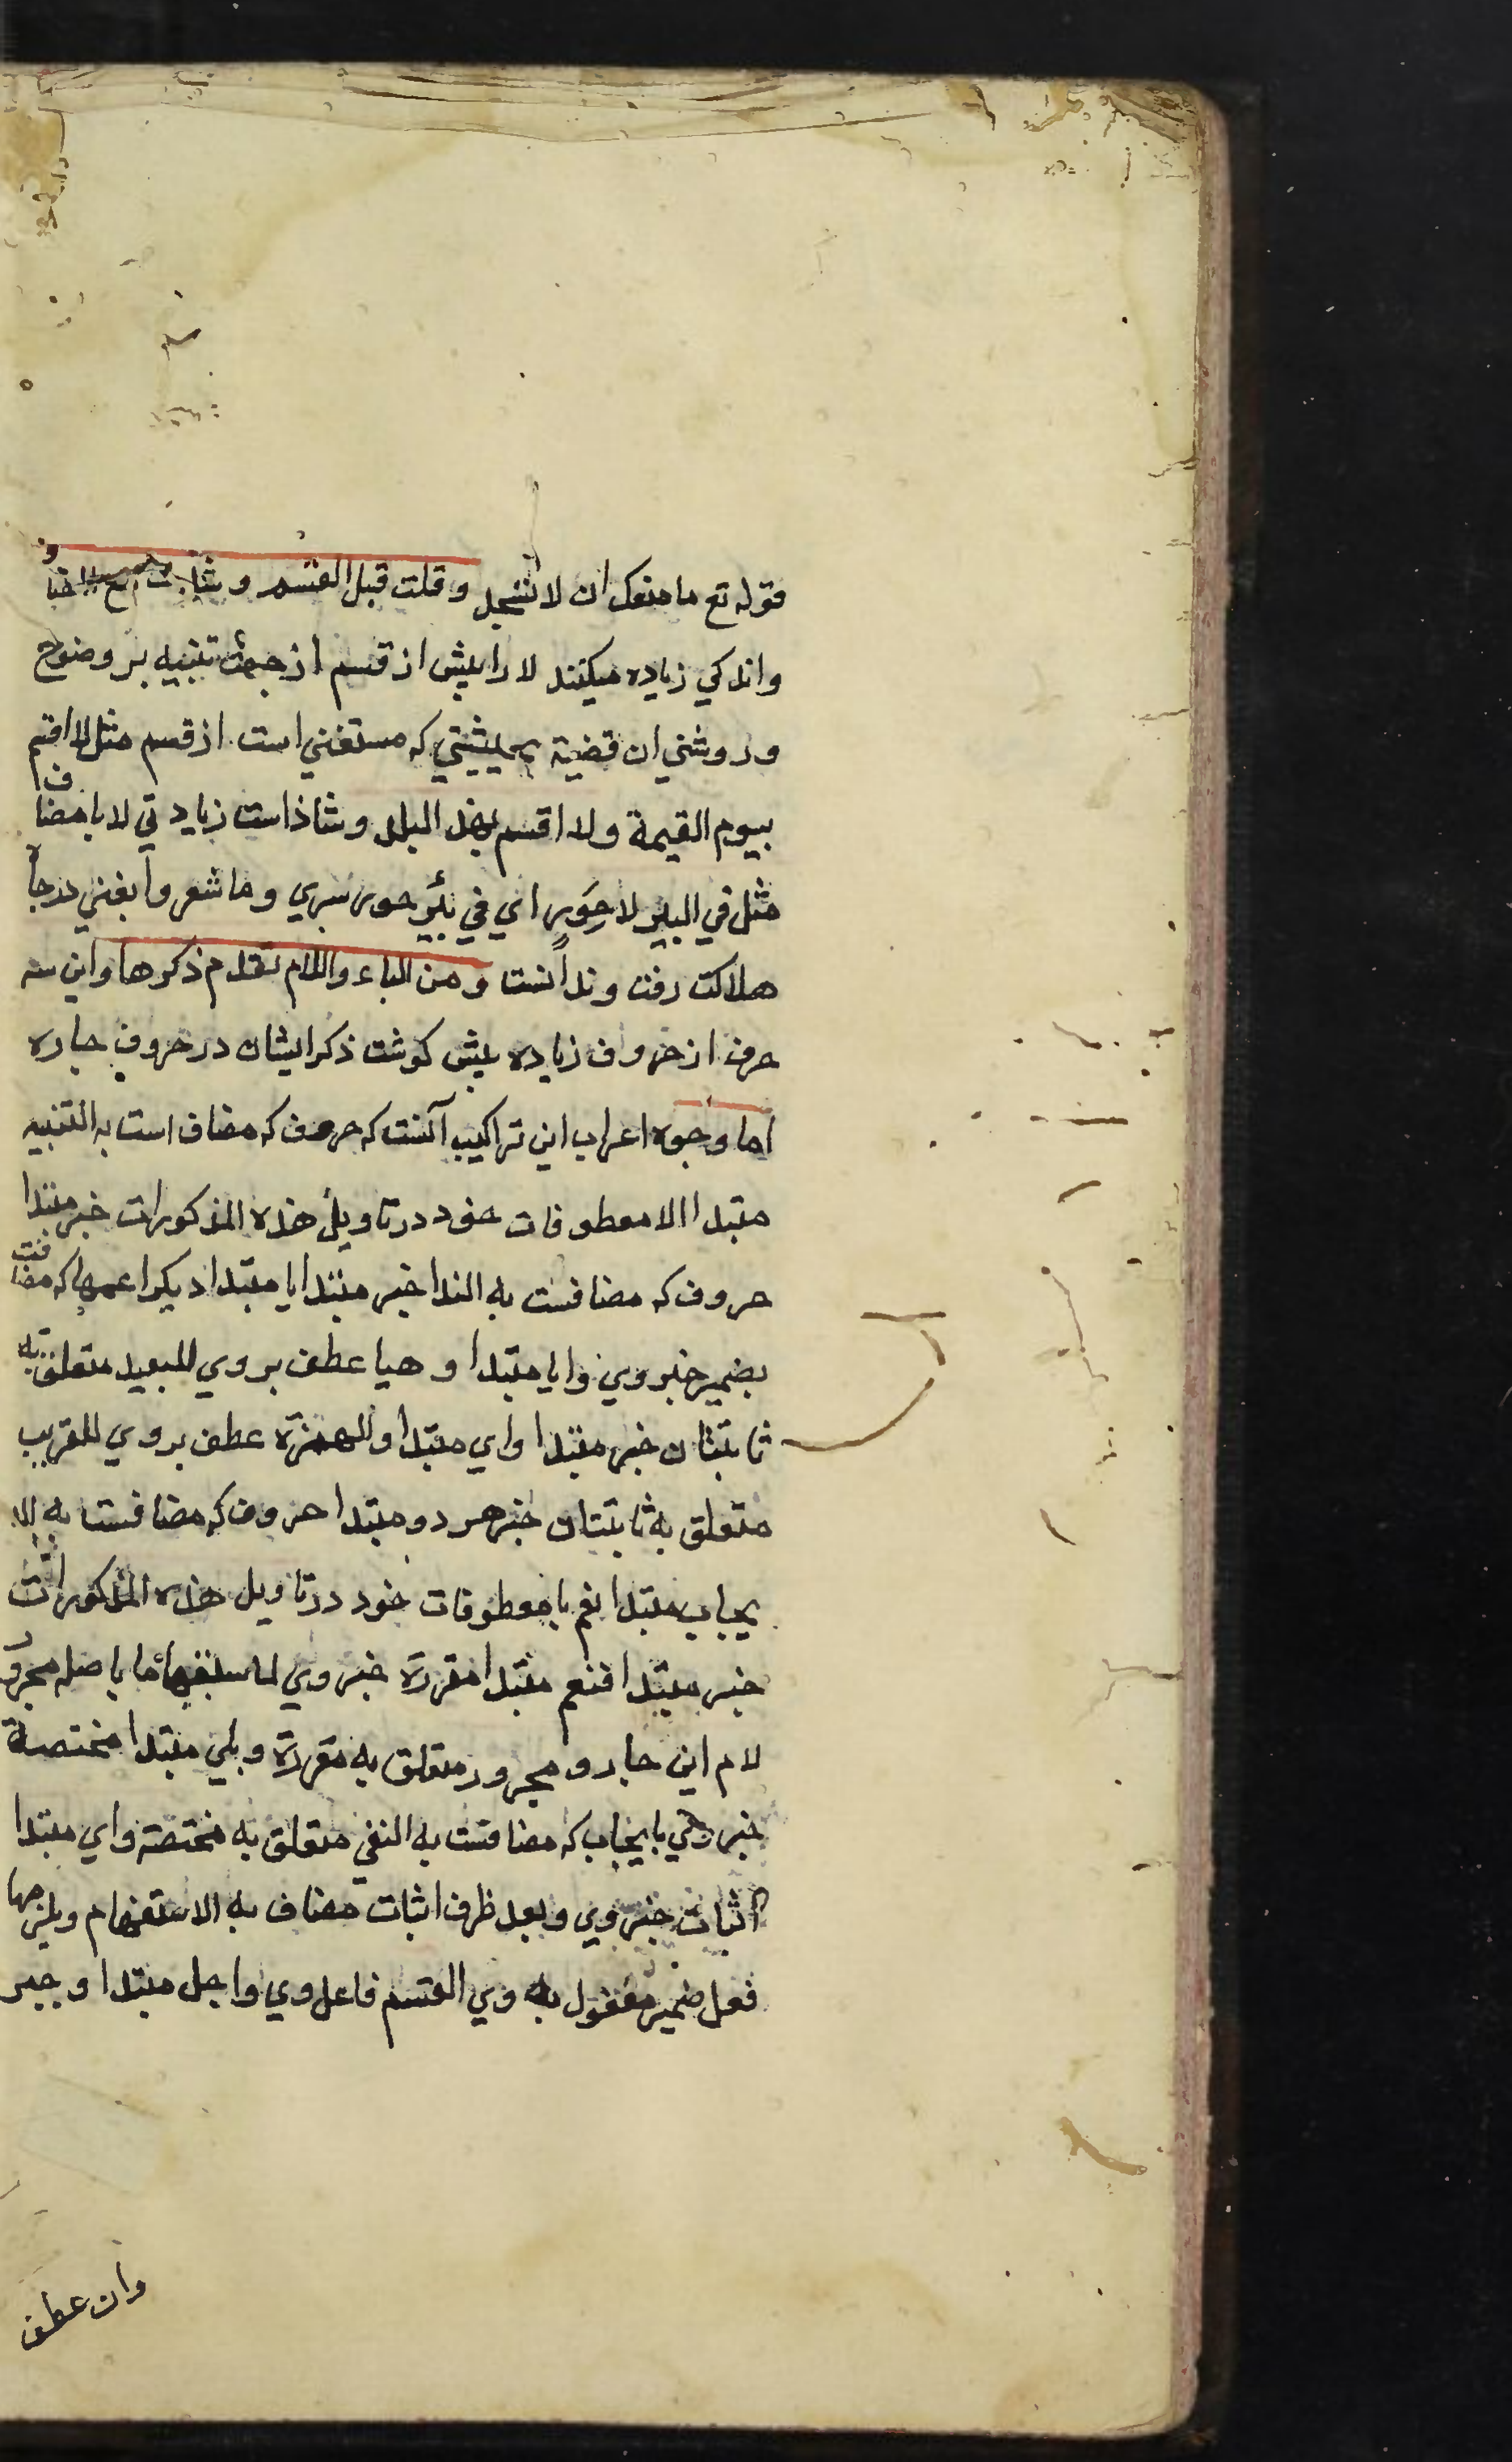 قوله تع ما منعک ان لا تسجد و قلت قبل القسم و شاذت مع المضا ف
واندکی زیاده میکنند لا را پیش از قسم از جهت تنبیه بر وضوح
وروشنی ان قضیة بحیثیتی که مستغنی است از قسم مثل لا اقسم
بیوم القیمة ولا اقسم بهذ البلد و شاذ است زیادتی لا با مضاف
مثل فی البیر لا حور ای فی بئر حور سری و ما شعر وا بغنی در جا
هلاکت رفت وندانست و من الباء واللام تقدم ذکرها واین سه
حرف از حروف زیاده پیش کوشت ذکر ایشان در حروف جاره
اما وجوه اعراب این تراکیب آنست که حروف که مضاف است به التنبیه
مبتدا الا معطوفات خود در تاویل هذه المذکورات خبر مبتدا
حروف که مضافست به الندا خبر مبتدا یا مبتدا دیکر اعمها که مضافت
بضمیر خبر وی و ایا مبتدا و هیا عطف بر وی للبعید متعلق به
ثابتتان خبر مبتدا وای مبتدا والهمزة عطف بر وی للقریب
متعلق به ثابتتان خبر هر دو مبتدا حروف که مضافست به الا
یجاب مبتدا نعم با معطوفات خود در تاویل هذه المذکورات
خبر مبتدا فنعم مبتدا مقررة خبر وی لما سبقها ما با صله مجرور
لام این جار و مجرور متعلق به مقررة و بلی مبتدا مختصة
خبر وی بایجاب که مضافست به النفی متعلق به مختصة وای مبتدا
اثبات خبر وی و بعد ظرف اثبات مضاف به الاستفهام ویلزمها
فعل ضمیر مفعول به وی القسم فاعل وی واجل مبتدا و جیر
وان عطف